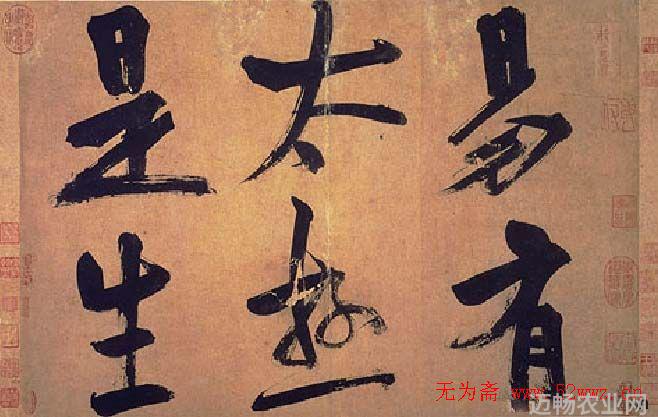 易有
太極
是生
无为斋 www.52wwz.cn
迈畅农业网